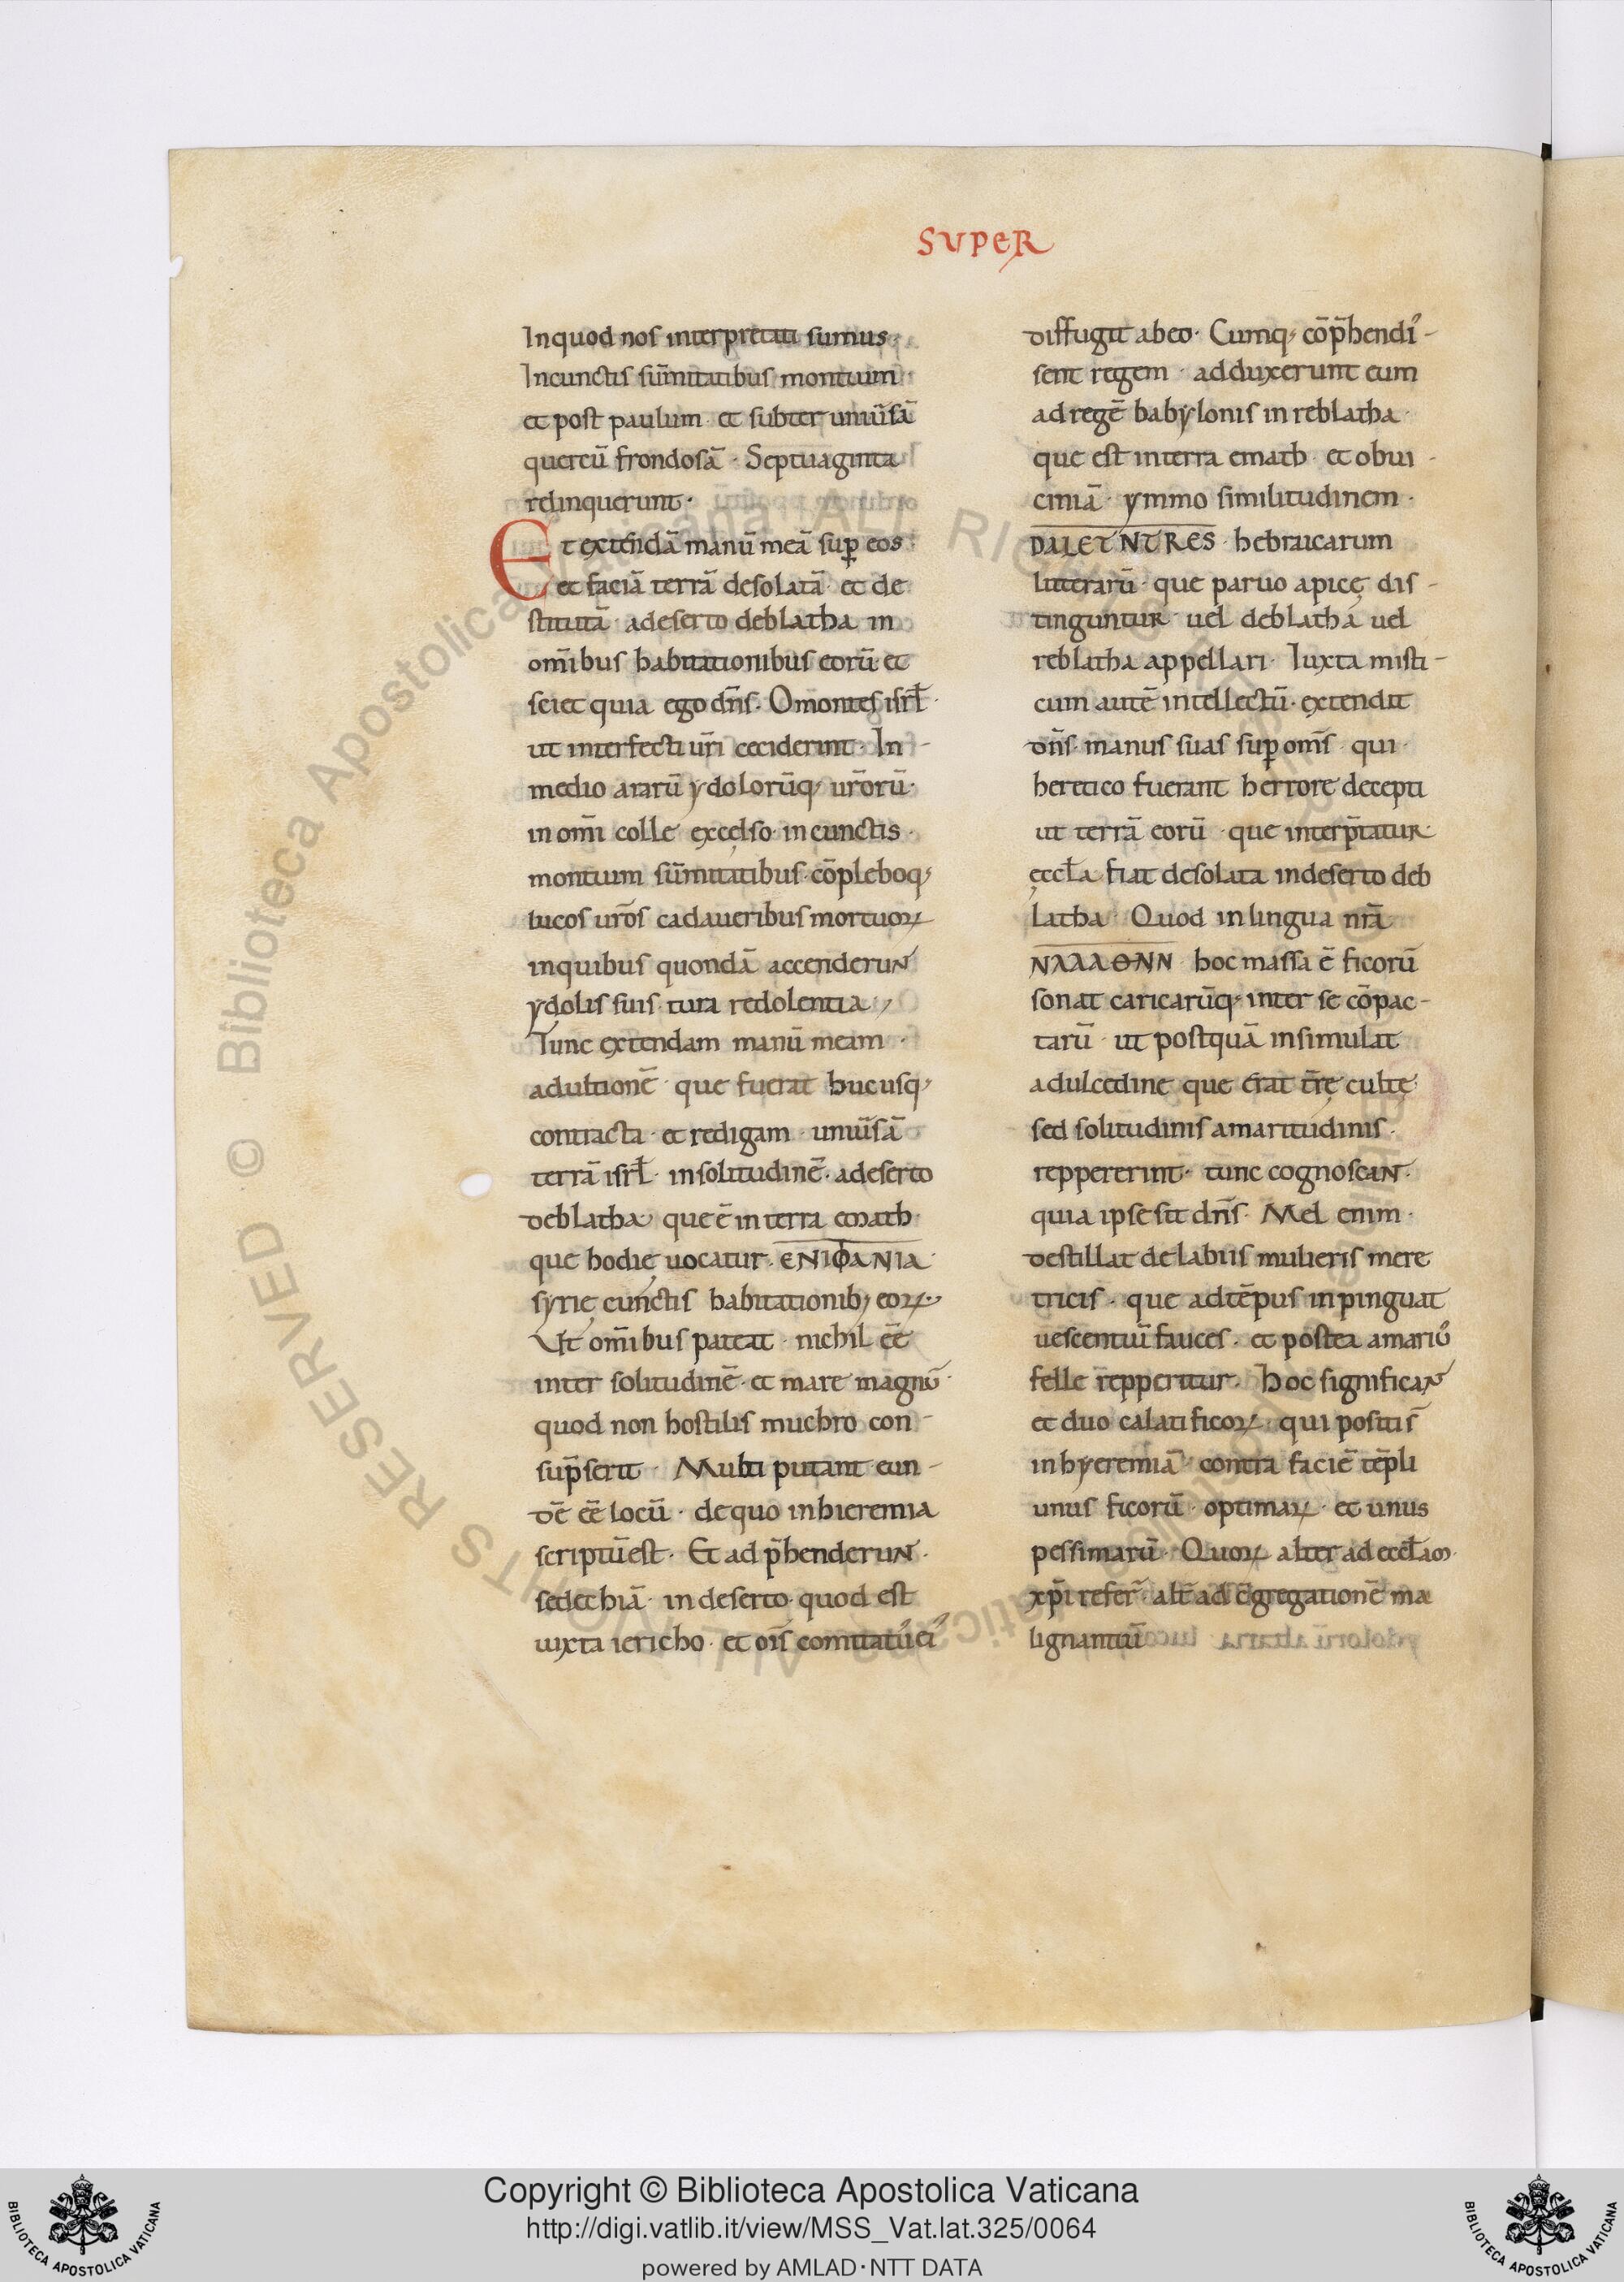 SUPER
In quod nos interpretati sumus·
In cunctis sūmitatibus montium·
et post paulum· et subter uniũsā
quercū frondosā· Septuaginta
relinquerunt·
Et extendā manū meā sup̄ eos·
et faciā terrā desolatā· et de
stitutā· a deserto deblatha in
om̄ibus habitationibus eorū· et
sciet quia ego dn̄s· O montes isrł·
ut interfecti ur̄i ceciderint· In-
medio ararū ydolorūq; ur̄orū·
in om̄i colle excęlso· in cunctis·
montium sūmitatibus· cōpleboq;
lucos ur̄os cadaueribus mortuoꝝ
in quibus quondā accenderuN
ydolis suis tura redolentia·
Tunc extendam manū meam·
ad ultionē· que fuerat hucusq;
contracta· et redigam· uniũsā
terrā isrł· in solitudinē· a deserto
deblatha· que ē in terra emath·
que hodię uocatur· ЄNIΦANIA·
syrię cunctis habitationib; eoꝝ·
Ut om̄ibus pateat· nichil eē
inter solitudinē· et mare magnū·
quod non hostilis muchro con-
sup̄serit· Multi putant eun-
dē eē locū· de quo in hieremia
scriptū est· Et adp̄henderuN·
sedechiā· in deserto· quod est
iuxta iericho· et ois̄ comitatꝰ eiꝰ
diffugit ab eo· Cumq; cōp̄hendi-
sent regem· adduxerunt eum
ad regē babylonis in reblatha·
que est in terra emath· et ob ui-
ciniā· ymmo similitudinem·
DALETNTRES· hebraicarum
litterarū· que paruo apicę dis-
tinguntur· uel deblatha uel
reblatha appellari· Iuxta misti-
cum autē intellectū· extendit
dn̄s manus suas sup̄ om̄s· qui·
heretico fuerant herrore decepti
ut terrā eorū· que interp̄tatur·
ęccła fiat desolata in deserto deb
latha· Quod in lingua nr̄a
NΛΛΛΘNN· hoc massa ē ficorū
sonat caricarūq; inter se cōpac-
tarū· ut postquā insimulat
a dulcedine que erat tr̄ę cultę·
sed solitudinis amaritudinis·
reppererint· tunc cognoscaN·
quia ipse sit dn̄s· Mel enim·
destillat de labiis mulieris mere
tricis· que ad tēpus inpinguat
uescentiū fauces· et postea amariꝰ
felle repperitur· Hoc significaN
et duo calati ficoꝝ· qui positi s̄
in hyeremiā· contra faciē tēpli
unus ficorū· optimaꝝ· et unus
pessimarū· Quoꝝ alter ad eccłam·
xp̄i refer̄· alt̄ ad ꝯgregationē ma
lignantiū
Copyright © Biblioteca Apostolica Vaticana
http://digi.vatlib.it/view/MSS_Vat.lat.325/0064
powered by AMLAD·NTT DATA
BIBLIOTECA APOSTOLICA VATICANA
BIBLIOTECA APOSTOLICA VATICANA